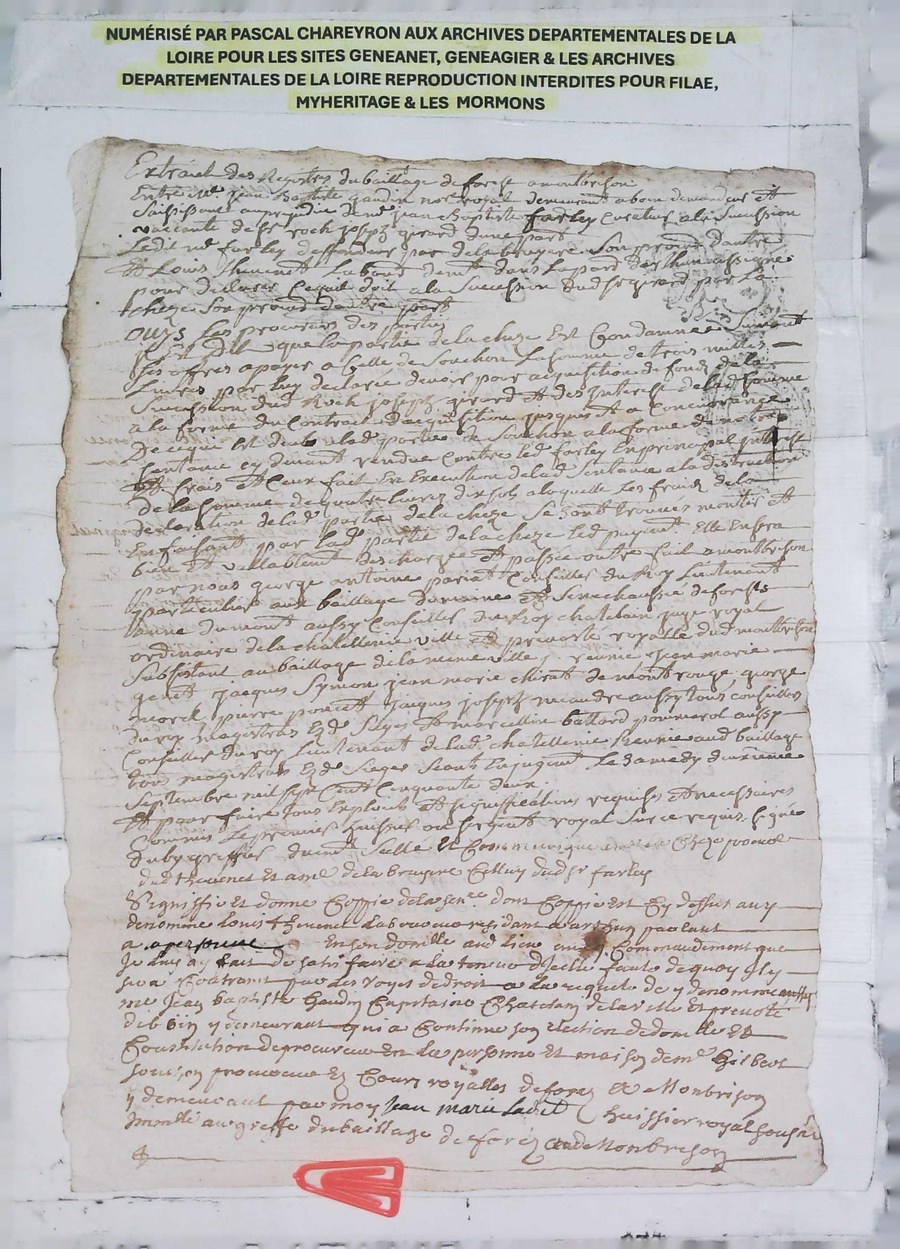 NUMÉRISÉ PAR PASCAL CHAREYRON AUX ARCHIVES DEPARTEMENTALES DE LA
LOIRE POUR LES SITES GENEANET, GENEAGIER & LES ARCHIVES
DEPARTEMENTALES DE LA LOIRE REPRODUCTION INTERDITES POUR FILAE,
MYHERITAGE & LES MORMONS
Extraict des Registres du bailliage de forest a montbrison
Entre Me Jean Baptiste gaudin no.re royal demeurant a boin demandeur et
Saisissant au prejudice de me Jean Baptiste farley Curateur a la Succession
vaccante de Sr roch joseph girard dune part
Ledit me farley deffendeur par delabruyere Son procur dautre
Et Louis thevenet Laboureur dem.t dans la par. darthun assigné
pour declarer Ce quil doit a la Succession dud Sr girard par La
cheze Son procur dautre part
OUYS Les procureurs des parties
Il est dit que la partie de la cheze Est Condamnée Suivant
Ses offres a payer a Celle de Souchon La Somme de trois milles
Livres par luy declarée devoir pour acquisition de fonds de la
Succession dud Roch joseph girard Et des Interest de lad Somme
a la forme du Contract dacquisition jusques Et a Concurrance
De ce qui Est deub a lad partie de Souchon a la forme de notre
Sentance cy devant rendue Contre led farley En principal Interest
Et frais Et Ceux fait En Execution de lad Sentance a la distraction
de la Somme de quatre livres dix sols a laquelle Les fraix de la
declaration de lad partie de la cheze Se Sont trouvés monter Et
En faisant par lad partie de la cheze led payement Elle En Sera
bien Et vallablem.t deschargée Et passée outre fait a montbrison
par nous george antoine pariat Conseiller du Roy Lieutenant
particulier aux bailliage domaine Et Senechaussée de forests
dumont aussy Conseiller du Roy chatelain juge royal
ordinaire de la chatellenie ville Et prevosté royalle dud montbrison
Subsistant au bailliage de la meme ville reunie Jean marie
genêt jacques Symon jean marie chirat de montrouge, george
morel pierre poncet jacques joseph meaudre aussy tous conseillers
du roy Magistrats Esd Sieges Et marcellin battard pommerol aussy
Conseiller du roy Lieutenant de lad. chatellenie Reunie aud bailliage
tous magistrats Esd Sieges Seant Et jugeant Le Samedy deuxieme
Septembre mil Sept Cent Cinquante deux
Et pour faire tous Exploits Et significations requises Et necessaires
Commis Le premier huissier ou Sergent royal Sur ce requis. Signé
greffier Et Communiqué Cheze procur
dud thevenet Et a me de la bruyere Celluy dudt Sr farley
Signiffié et donné Coppie de la sence dont Coppie est Cy dessus au y
denommé Louis thevenet Laboureur residant a arthun parlant
a sa personne En son domille aud Lieu Commandement que
Je luy ay fait de satisfaire a la teneur dJcelle faute de quoy Jl y
sera Contraint par Les voyes de droit a la requete de y denommé
me Jean baptiste Gaudin Capitaine Chatelain de la ville Et prevoté
de boin y demeurant qui a Continué son election de domille Et
Constitution de procureur En La personne et maison de me Gilbert
souchon procureur Es Cours royalles de forez Et Montbrison
y demeurant par moy Jean marie Huissier royal soussigné
immatlé au greffe du bailliage de forez Montbrison